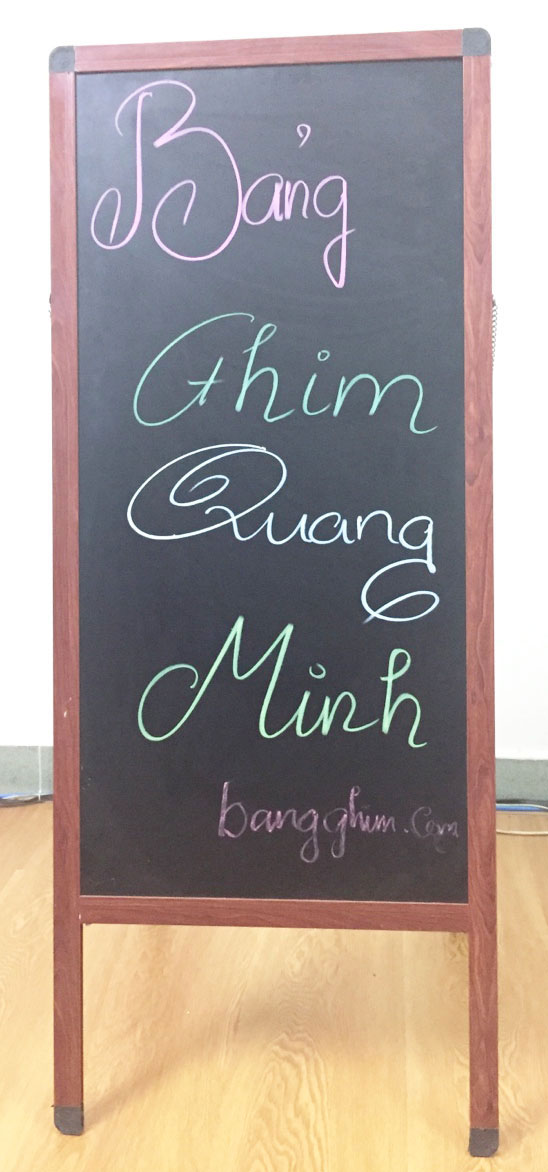 Bảng
Ghim
Quang
Minh
bangghim.com